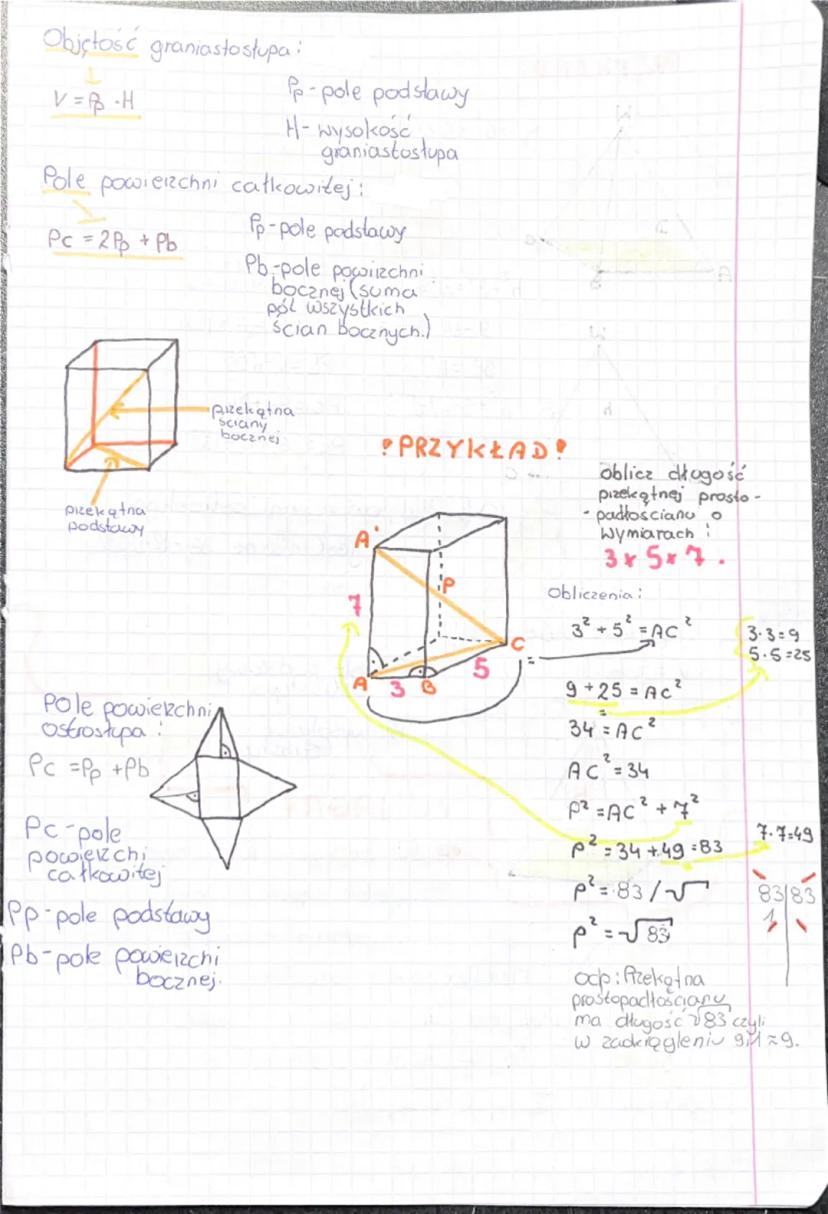 Objętość graniastosłupa:
V = Pp · H
Pp - pole podstawy
H - wysokość
graniastosłupa
Pole powierzchni całkowitej:
Pc = 2Pp + Pb
Pp - pole podstawy
Pb - pole powirzchni
bocznej (suma
pól wszystkich
ścian bocznych.)
przekątna
ściany
bocznej
przekątna
podstawy
!PRZYKŁAD!
oblicz długość
przekątnej prosto-
-padłościanu o
wymiarach:
3 x 5 x 7.
A'
P
7
C
A 3 B 5
Obliczenia:
3² + 5² = AC²
3·3=9
5·5=25
9 + 25 = AC²
34 = AC²
AC² = 34
P² = AC² + 7²
P² = 34 + 49 = 83
7·7=49
P² = 83 / √
83|83
1
P² = √83
odp: Przekątna
prostopadłościanu
ma długość √83 czyli
w zaokrągleniu 9,1 ≈ 9.
Pole powierzchni
ostrosłupa:
Pc = Pp + Pb
Pc - pole
powierzchi
całkowitej
Pp - pole podstawy
Pb - pole powierzchi
bocznej.